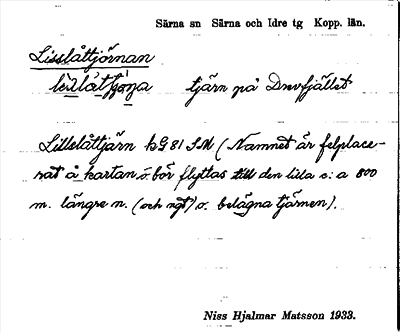 Särna sn Särna och Idre tg Kopp. län.
Lisslåttjörnan
tjärn på Drevfjället
Lillelåttjärn kG 81 SM (Namnet är felplace-
rat å kartan o. bör flyttas till den lilla c:a 800
m. längre n. (och ngt) o. belägna tjärnen).
Niss Hjalmar Matsson 1933.